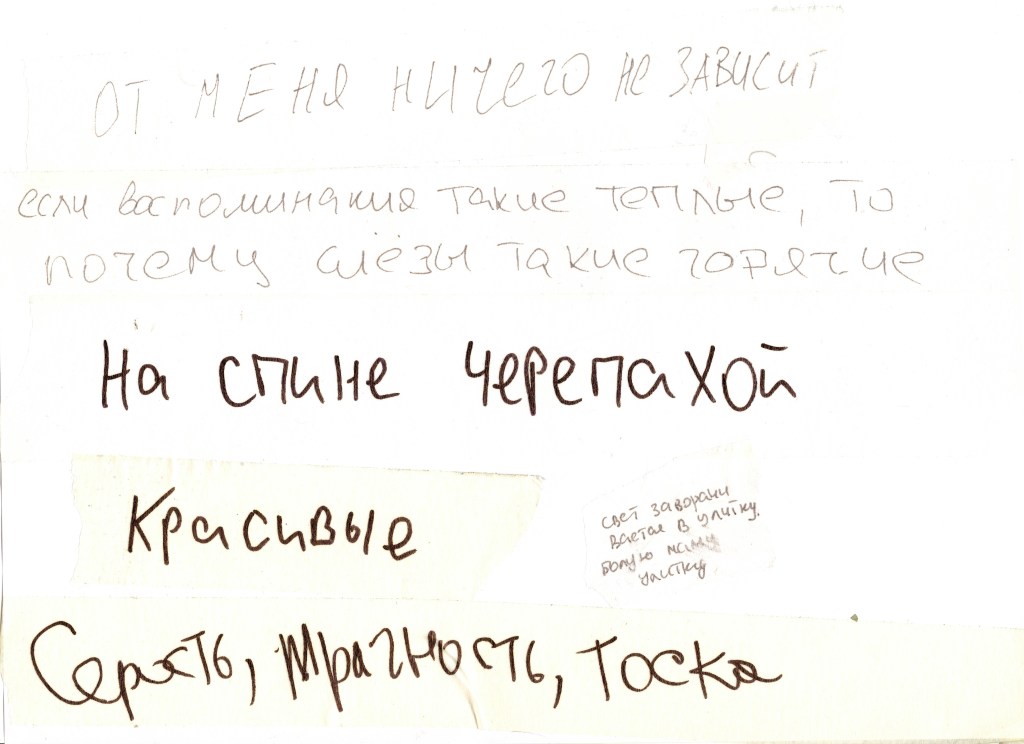 ОТ МЕНЯ НИЧЕГО НЕ ЗАВИСИТ
если воспоминания такие теплые, то
почему слёзы такие горячие
На спине черепахой
Красивые
свет заворачи
вается в улитку.
улитку
Серость, мрачность, тоска